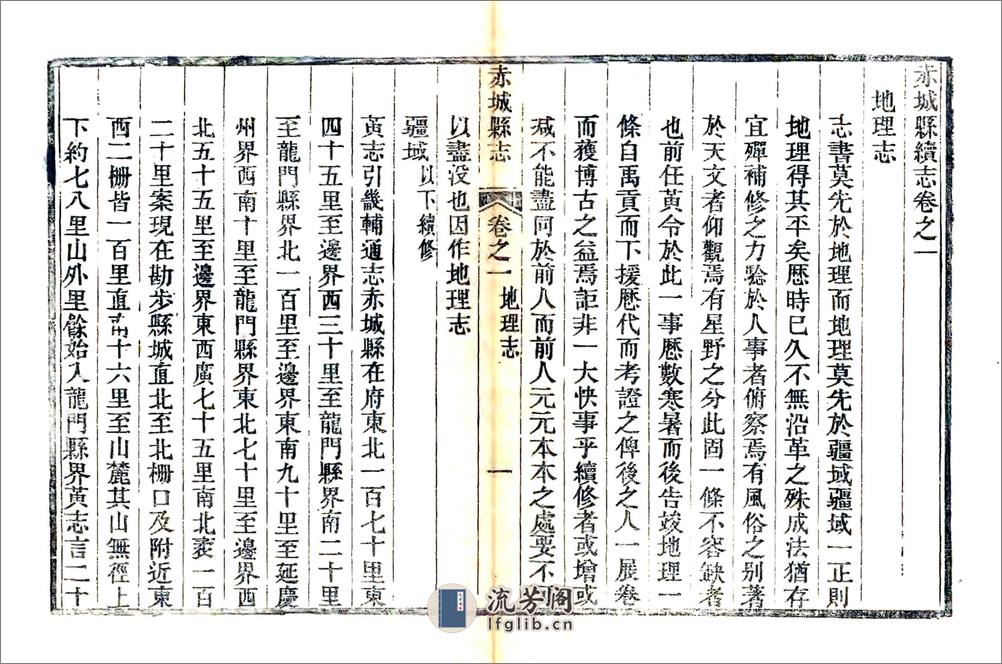 赤城縣續志卷之一
地理志
志書莫先於地理而地理莫先於疆域疆域一正則
地理得其平矣歷時已久不無沿革之殊成法猶存
宜殫補修之力驗於人事者俯察焉有風俗之別著
於天文者仰觀焉有星野之分此固一條不容缺者
也前任黃令於此一事歷數寒暑而後告竣地理一
條自禹貢而下援歷代而考證之俾後之人一展卷
而獲博古之益焉詎非一大快事乎續修者或增或
減不能盡同於前人而前人元元本本之處要不
以盡沒也因作地理志
赤城縣志 卷之一 地理志 一
疆域以下續修
黃志引畿輔通志赤城縣在府東北一百七十里東
四十五里至邊界西三十里至龍門縣界南二十里
至龍門縣界北一百里至邊界東南九十里至延慶
州界西南十里至龍門縣界東北七十里至邊界西
北五十五里至邊界東西廣七十五里南北袤一百
二十里案現在勘步縣城直北至北柵口及附近東
西二柵皆一百里直南十六里至山麓其山無徑上
下約七八里山外里餘始入龍門縣界黃志言二十
流芳阁
lfglib.cn